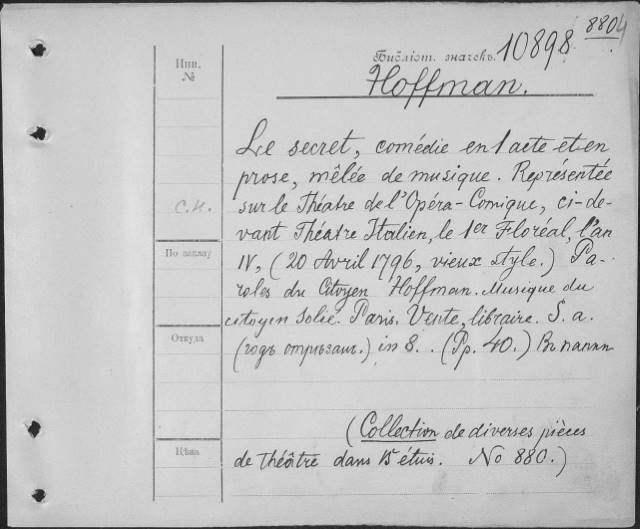 8804
Библіот. значекъ. 10898
Инв.
№
Hoffman.
Le secret, comédie en 1 acte et en
prose, mêlée de musique. Représentée
С.Н.
sur le Théatre de l'Opéra-Comique, ci-de-
vant Théatre Italien, le 1er Floréal, l'an
По каталу
IV, (20 Avril 1796, vieux style.) Pa-
roles du Citoyen Hoffman. Musique du
citoyen Solié. Paris. Vente, libraire. S. a.
Откуда
(годъ отрѣзанъ.) in 8. . (Pp. 40.) Въ папкѣ
(Collection de diverses pièces
Цѣна
de théâtre dans 15 étuis. No 880.)